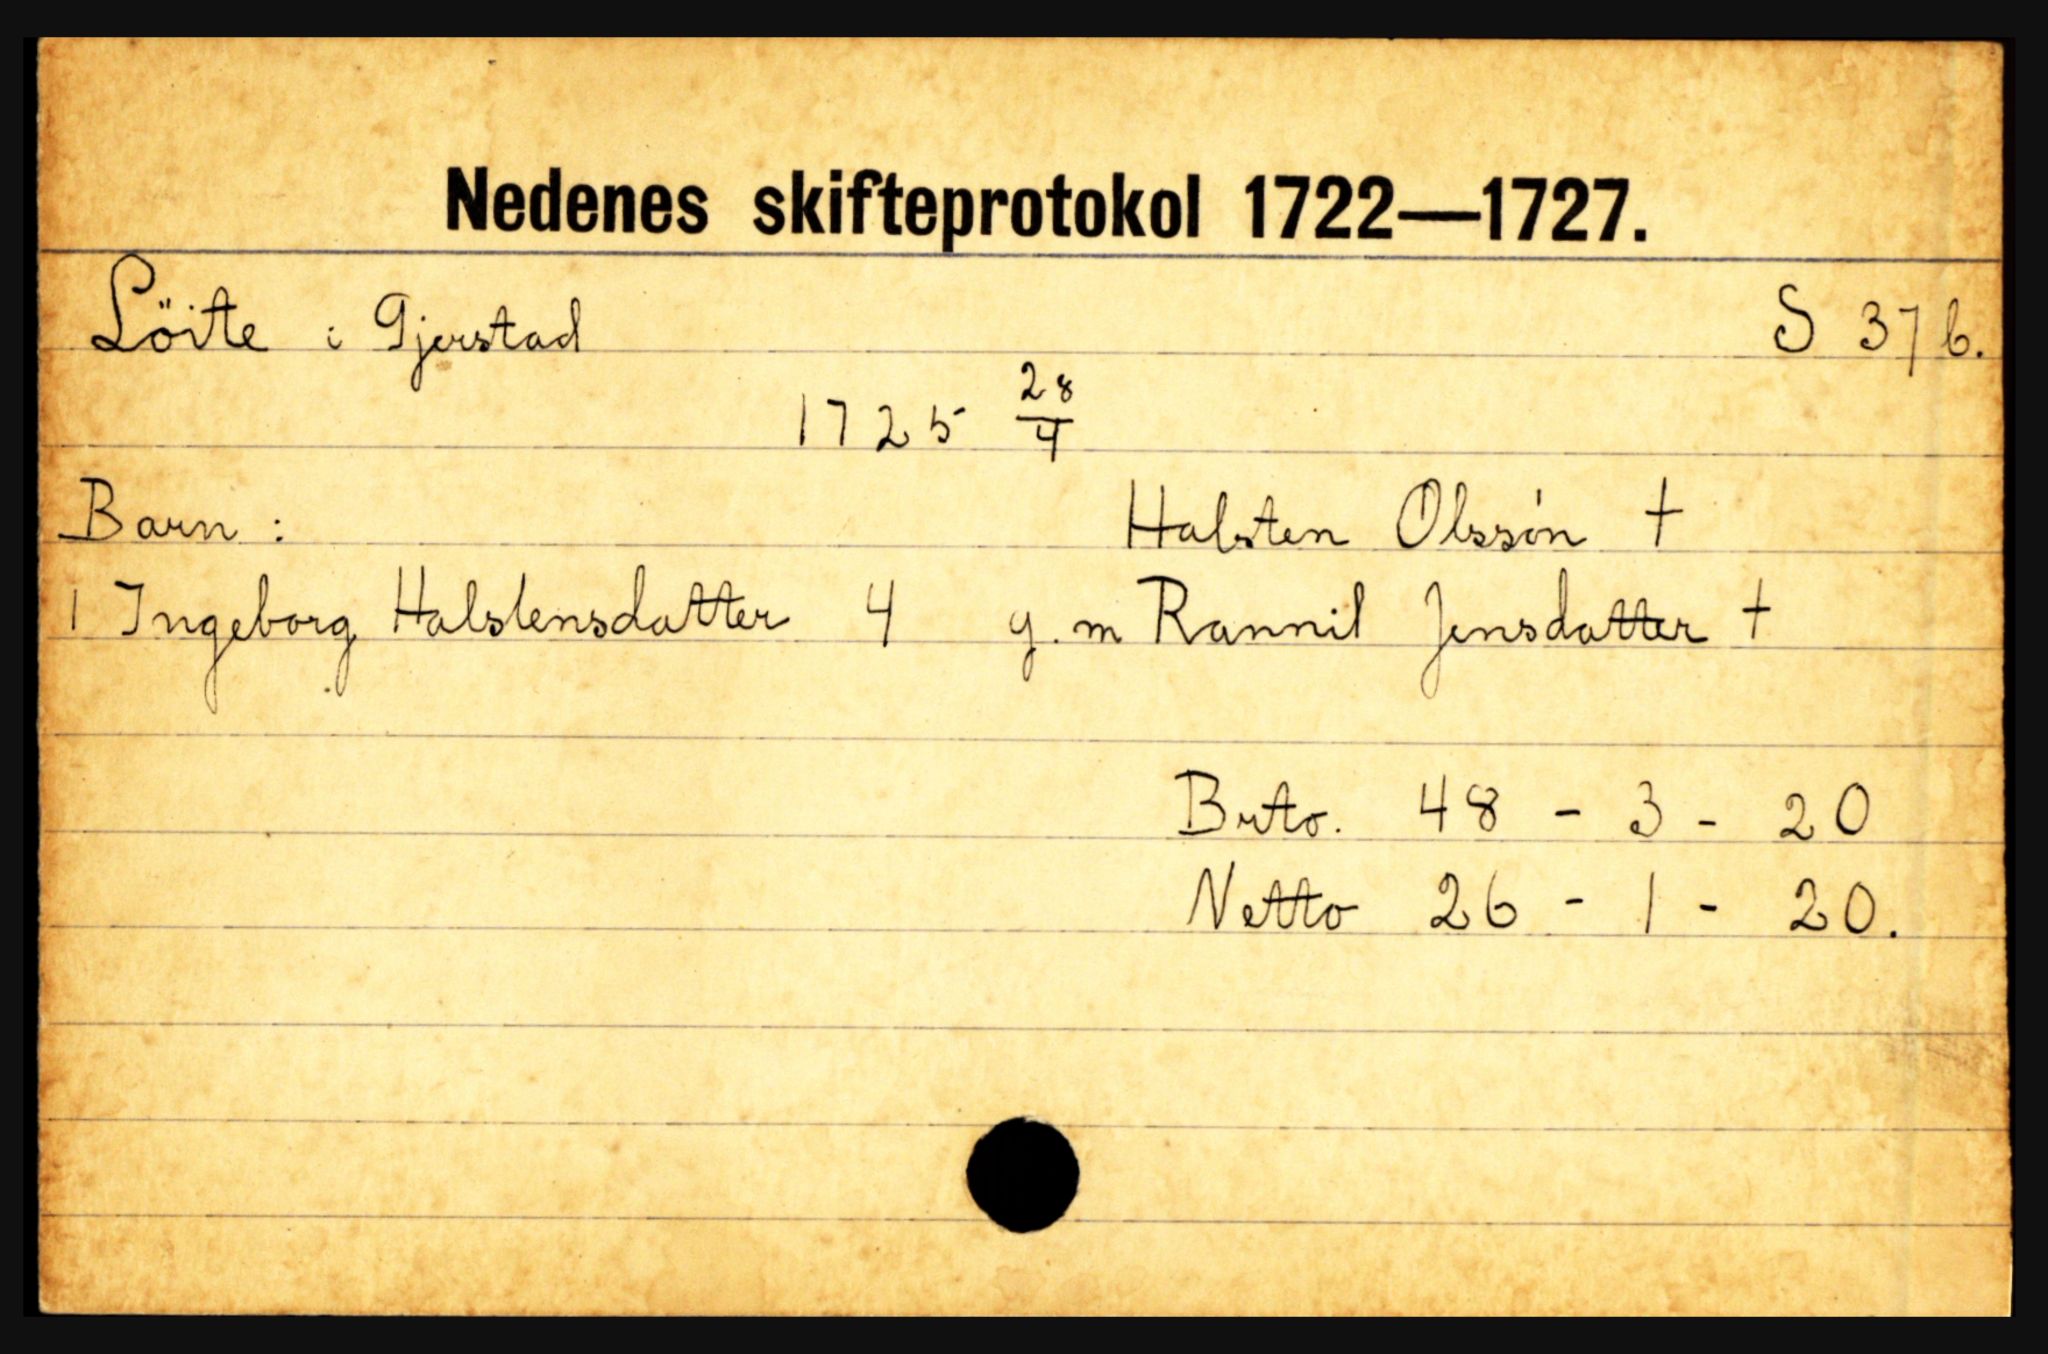 Nedenes skifteprotokol 1722—1727.
Löite i Gjerstad S 37 b.
1725 28/4
Barn : Halsten Olssön †
1 Ingeborg Halstensdatter 4 g. m Rannil Jensdatter †
Brto. 48 - 3 - 20
Netto 26 - 1 - 20.